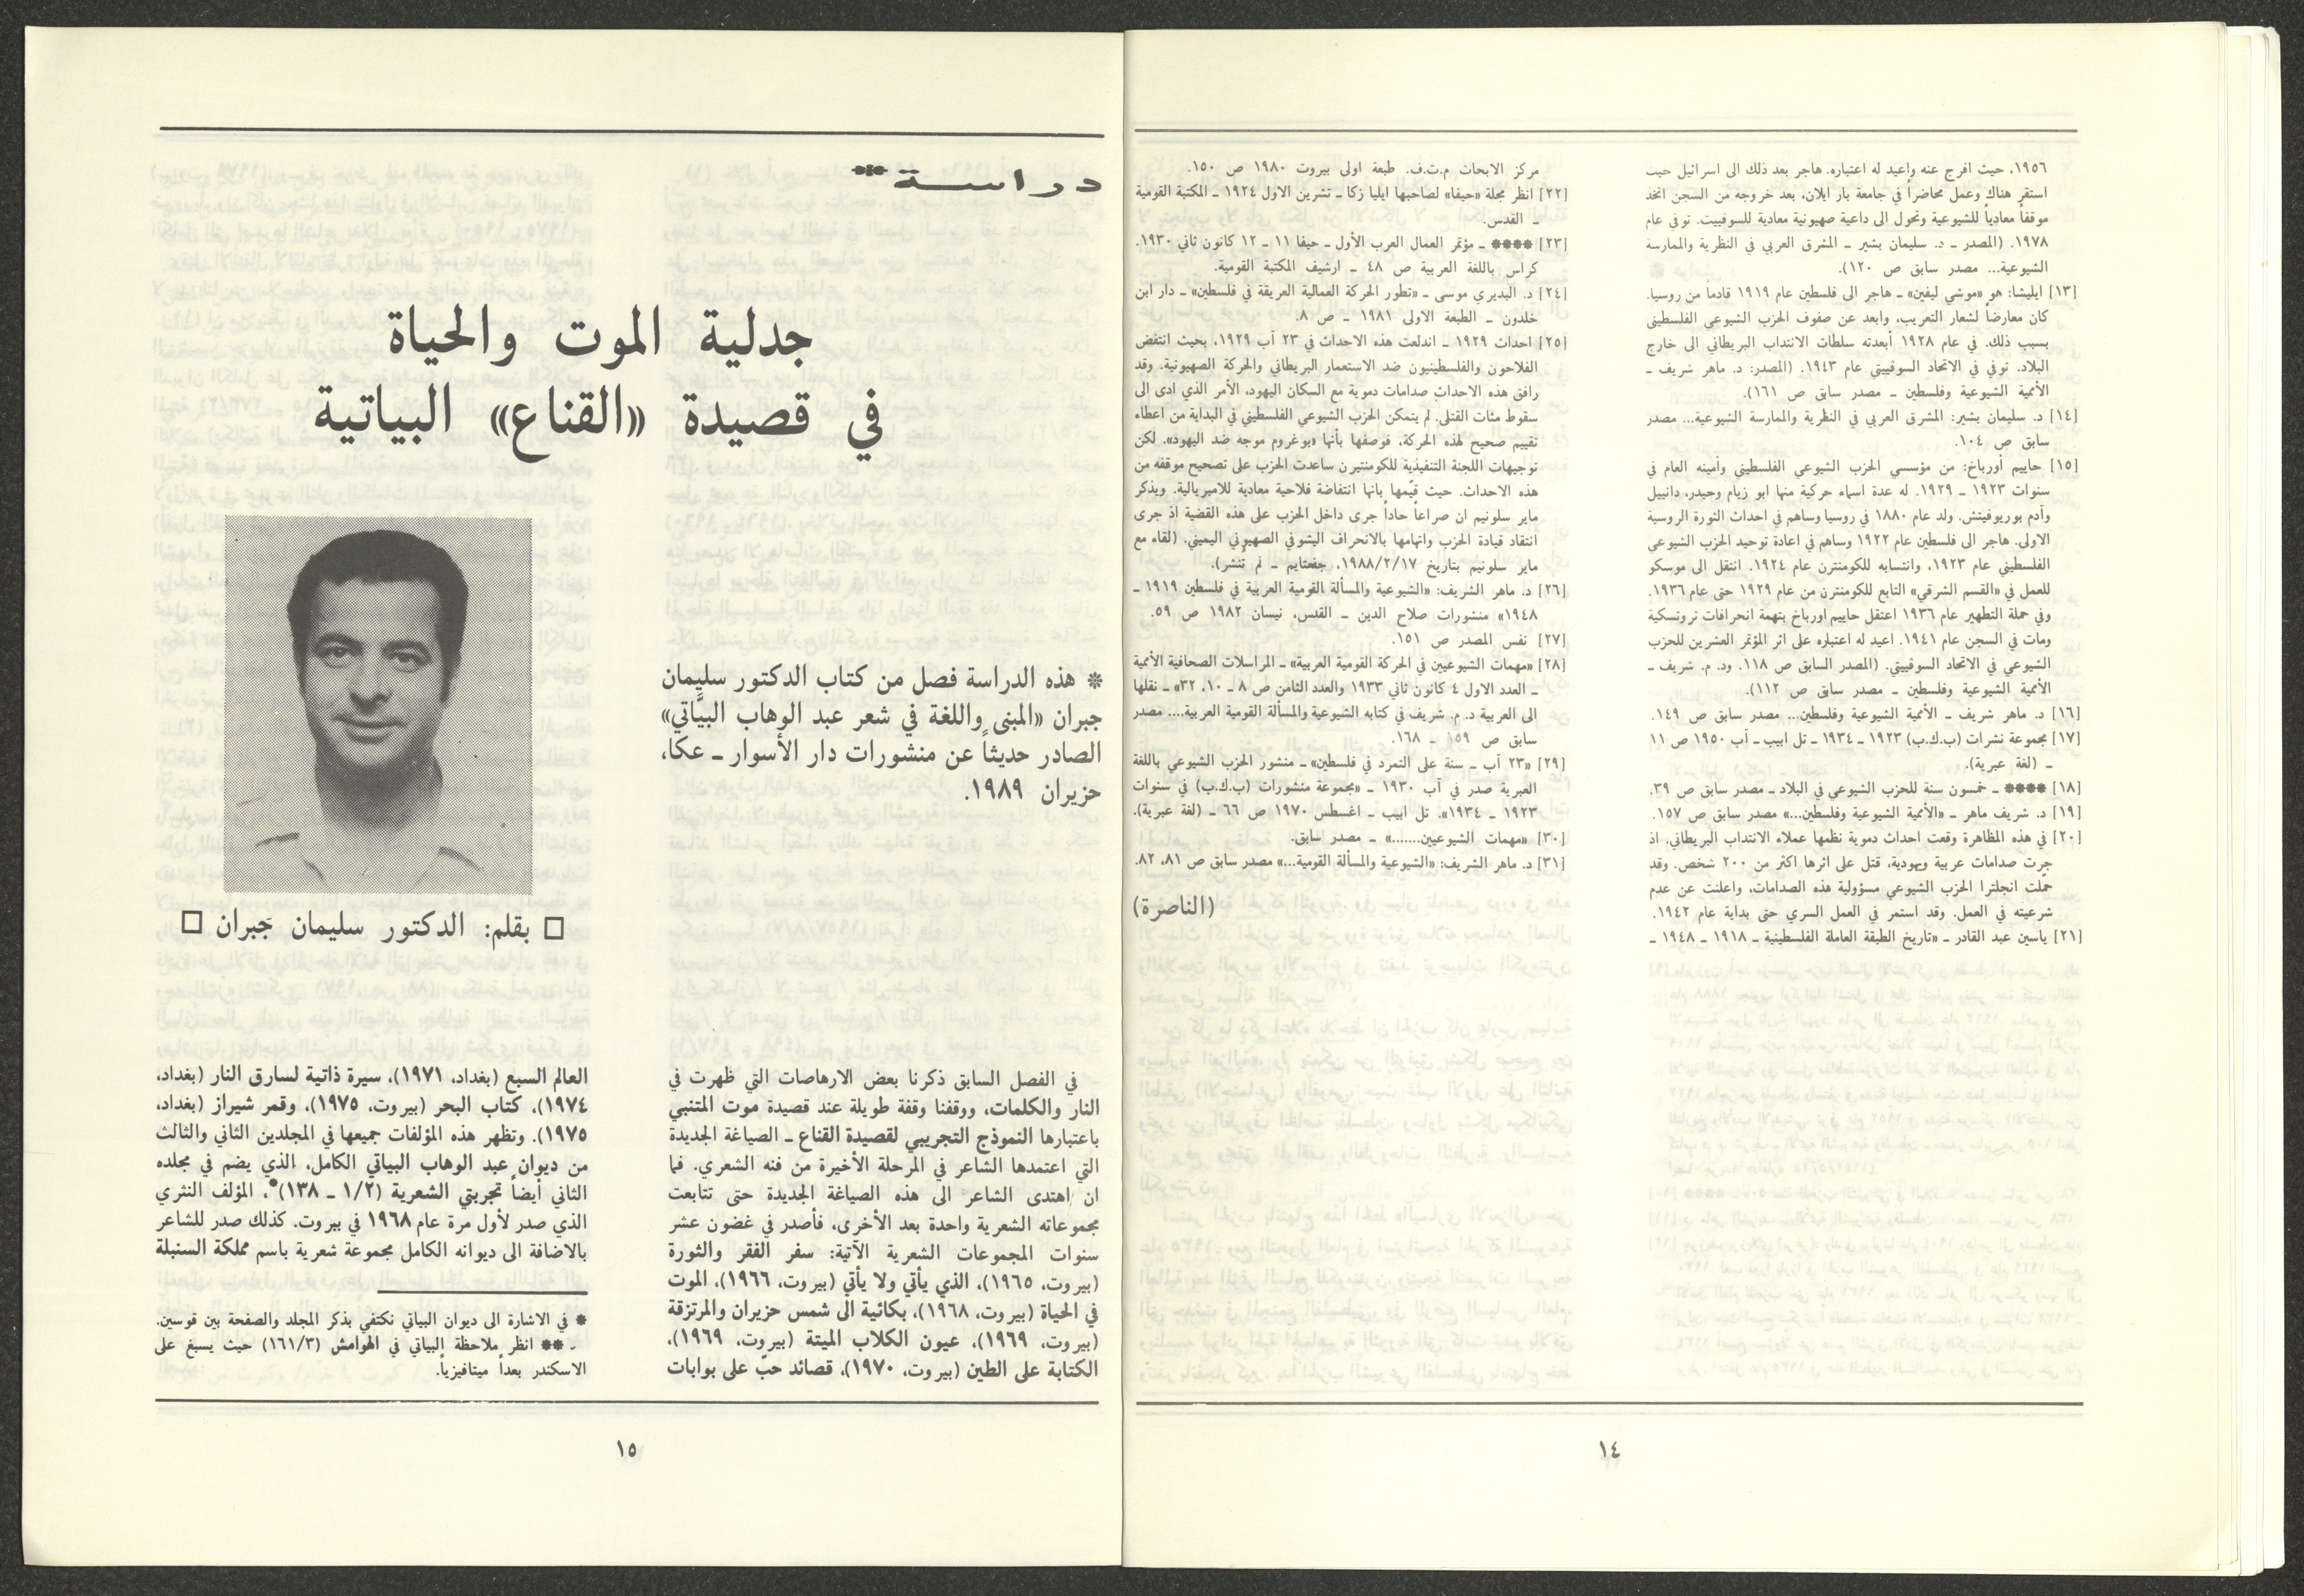 ١٩٥٦، حيث افرج عنه واعيد له اعتباره. هاجر بعد ذلك الى اسرائيل حيث
استقر هناك وعمل محاضراً في جامعة بار ايلان، بعد خروجه من السجن اتخذ
موقفاً معادياً للشيوعية وتحول الى داعية صهيونية معادية للسوفييت. توفي عام
١٩٧٨. (المصدر ـ د. سليمان بشير ـ المشرق العربي في النظرية والممارسة
الشيوعية... مصدر سابق ص ١٢٠).
[١٣] ايليشا: هو «موشي ليفين» ـ هاجر الى فلسطين عام ١٩١٩ قادماً من روسيا.
كان معارضاً لشعار التعريب، وابعد عن صفوف الحزب الشيوعي الفلسطيني
بسبب ذلك. في عام ١٩٢٨ أبعدته سلطات الانتداب البريطاني الى خارج
البلاد. توفي في الاتحاد السوفييتي عام ١٩٤٣. (المصدر: د. ماهر شريف ـ
الأممية الشيوعية وفلسطين ـ مصدر سابق ص ١٦١).
[١٤] د. سليمان بشير: المشرق العربي في النظرية والممارسة الشيوعية... مصدر
سابق ص ١٠٤.
[١٥] حاييم أورباخ: من مؤسسي الحزب الشيوعي الفلسطيني وأمينه العام في
سنوات ١٩٢٣ ـ ١٩٢٩. له عدة اسماء حركية منها ابو زيام وحيدر، دانييل
وآدم بوريوفيتش. ولد عام ١٨٨٠ في روسيا وساهم في احداث الثورة الروسية
الاولى. هاجر الى فلسطين عام ١٩٢٢ وساهم في اعادة توحيد الحزب الشيوعي
الفلسطيني عام ١٩٢٣، وانتسابه للكومنترن عام ١٩٢٤. انتقل الى موسكو
للعمل في «القسم الشرقي» التابع للكومنترن من عام ١٩٢٩ حتى عام ١٩٣٦.
وفي حملة التطهير عام ١٩٣٦ اعتقل حاييم اورباخ بتهمة انحرافات تروتسكية
ومات في السجن عام ١٩٤١. اعيد له اعتباره على اثر المؤتمر العشرين للحزب
الشيوعي في الاتحاد السوفييتي. (المصدر السابق ص ١١٨. ود. م. شريف ـ
الأممية الشيوعية وفلسطين ـ مصدر سابق ص ١١٢).
[١٦] د. ماهر شريف ـ الأممية الشيوعية وفلسطين... مصدر سابق ص ١٤٩.
[١٧] مجموعة نشرات (ب.ك.ب) ١٩٢٣ ـ ١٩٣٤ ـ تل ابيب ـ آب ١٩٥٠ ص ١١
ـ (لغة عبرية).
[١٨] **** ـ خمسون سنة للحزب الشيوعي في البلاد ـ مصدر سابق ص ٣٩.
[١٩] د. شريف ماهر ـ «الأممية الشيوعية وفلسطين...» مصدر سابق ص ١٥٧.
[٢٠] في هذه المظاهرة وقعت احداث دموية نظمها عملاء الانتداب البريطاني. اذ
جرت صدامات عربية ويهودية، قتل على اثرها اكثر من ٢٠٠ شخص. وقد
حمّلت انجلترا الحزب الشيوعي مسؤولية هذه الصدامات، واعلنت عن عدم
شرعيته في العمل. وقد استمر في العمل السري حتى بداية عام ١٩٤٢.
[٢١] ياسين عبد القادر ـ «تاريخ الطبقة العاملة الفلسطينية ـ ١٩١٨ ـ ١٩٤٨ ـ
مركز الابحاث م.ت.ف. طبعة اولى بيروت ١٩٨٠ ص ١٥٠.
[٢٢] انظر مجلة «حيفا» لصاحبها ايليا زكا ـ تشرين الاول ١٩٢٤ ـ المكتبة القومية
ـ القدس.
[٢٣] **** ـ مؤتمر العمال العرب الأول ـ حيفا ١١ ـ ١٢ كانون ثاني ١٩٣٠.
كراس باللغة العربية ص ٤٨ ـ ارشيف المكتبة القومية.
[٢٤] د. البديري موسى ـ «تطور الحركة العمالية العريقة في فلسطين» ـ دار ابن
خلدون ـ الطبعة الاولى ١٩٨١ ـ ص ٨.
[٢٥] احداث ١٩٢٩ ـ اندلعت هذه الاحداث في ٢٣ آب ١٩٢٩، بحيث انتفض
الفلاحون والفلسطينيون ضد الاستعمار البريطاني والحركة الصهيونية. وقد
رافق هذه الاحداث صدامات دموية مع السكان اليهود، الأمر الذي ادى الى
سقوط مئات القتلى. لم يتمكن الحزب الشيوعي الفلسطيني في البداية من اعطاء
تقييم صحيح لهذه الحركة، فوصفها بأنها «بوغروم موجه ضد اليهود». لكن
توجيهات اللجنة التنفيذية للكومنتيرن ساعدت الحزب على تصحيح موقفه من
هذه الاحداث. حيث قيّمها بانها انتفاضة فلاحية معادية للامبريالية. ويذكر
ماير سلونيم ان صراعاً حاداً جرى داخل الحزب على هذه القضية اذ جرى
انتقاد قيادة الحزب واتهامها بالانحراف اليشوفي الصهيوني اليميني. (لقاء مع
ماير سلونيم بتاريخ ١٩٨٨/٢/١٧، جفعتايم ـ لم تنشر).
[٢٦] د. ماهر الشريف: «الشيوعية والمسألة القومية العربية في فلسطين ١٩١٩ ـ
١٩٤٨» منشورات صلاح الدين ـ القدس، نيسان ١٩٨٢ ص ٥٩.
[٢٧] نفس المصدر ص ١٥١.
[٢٨] «مهمات الشيوعيين في الحركة القومية العربية» ـ المراسلات الصحافية الأممية
ـ العدد الاول ٤ كانون ثاني ١٩٣٣ والعدد الثامن ص ٨ ـ ١٠، ٣٢» ـ نقلها
الى العربية د. م. شريف في كتابه الشيوعية والمسألة القومية العربية.... مصدر
سابق ص ١٥٩ ـ ١٦٨.
[٢٩] «٢٣ آب ـ سنة على التمرد في فلسطين» ـ منشور الحزب الشيوعي باللغة
العبرية صدر في آب ١٩٣٠ ـ «مجموعة منشورات (ب.ك.ب) في سنوات
١٩٢٣ ـ ١٩٣٤». تل ابيب ـ اغسطس ١٩٧٠ ص ٦٦ ـ (لغة عبرية).
[٣٠] «مهمات الشيوعيين.......» ـ مصدر سابق.
[٣١] د. ماهر الشريف: «الشيوعية والمسألة القومية...» مصدر سابق ص ٨١، ٨٢.
(الناصرة)
١٤
دراسة**
جدلية الموت والحياة
في قصيدة «القناع» البياتية
* هذه الدراسة فصل من كتاب الدكتور سليمان
جبران «المبنى واللغة في شعر عبد الوهاب البيّاتي»
الصادر حديثاً عن منشورات دار الأسوار ـ عكا،
حزيران ١٩٨٩.
□ بقلم: الدكتور سليمان جَبران □
في الفصل السابق ذكرنا بعض الارهاصات التي ظهرت في
النار والكلمات، ووقفنا وقفة طويلة عند قصيدة موت المتنبي
باعتبارها النموذج التجريبي لقصيدة القناع ـ الصياغة الجديدة
التي اعتمدها الشاعر في المرحلة الأخيرة من فنه الشعري. فما
ان اهتدى الشاعر الى هذه الصياغة الجديدة حتى تتابعت
مجموعاته الشعرية واحدة بعد الأخرى، فأصدر في غضون عشر
سنوات المجموعات الشعرية الآتية: سفر الفقر والثورة
(بيروت، ١٩٦٥)، الذي يأتي ولا يأتي (بيروت، ١٩٦٦)، الموت
في الحياة (بيروت، ١٩٦٨)، بكائية الى شمس حزيران والمرتزقة
(بيروت، ١٩٦٩)، عيون الكلاب الميتة (بيروت، ١٩٦٩)،
الكتابة على الطين (بيروت، ١٩٧٠)، قصائد حبّ على بوابات
العالم السبع (بغداد، ١٩٧١)، سيرة ذاتية لسارق النار (بغداد،
١٩٧٤)، كتاب البحر (بيروت، ١٩٧٥)، وقمر شيراز (بغداد،
١٩٧٥). وتظهر هذه المؤلفات جميعها في المجلدين الثاني والثالث
من ديوان عبد الوهاب البياتي الكامل، الذي يضم في مجلده
الثاني أيضاً تجربتي الشعرية (١/٢ ـ ١٣٨)*، المؤلف النثري
الذي صدر لأول مرة عام ١٩٦٨ في بيروت. كذلك صدر للشاعر
بالاضافة الى ديوانه الكامل مجموعة شعرية باسم مملكة السنبلة
* في الاشارة الى ديوان البياتي نكتفي بذكر المجلد والصفحة بين قوسين.
ـ ** انظر ملاحظة البياتي في الهوامش (١٦١/٣) حيث يسبغ على
الاسكندر بعداً ميتافيزياً.
١٥